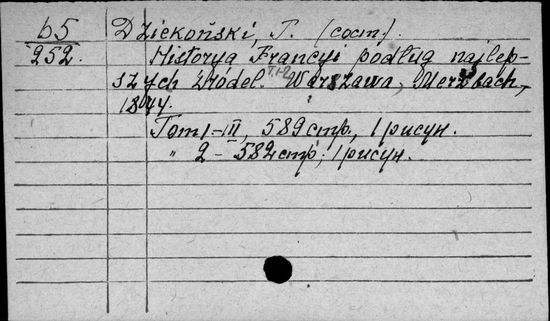 65 Dziekoński, T. (сост.).
252. Historya Francyi podług najlep-
szych źródeł. T. 1-2. Warszawa, Merzbach,
1844.
Tom I-III, 589 стр., 1 рисун.
" 2 - 582 стр; 1 рисун.